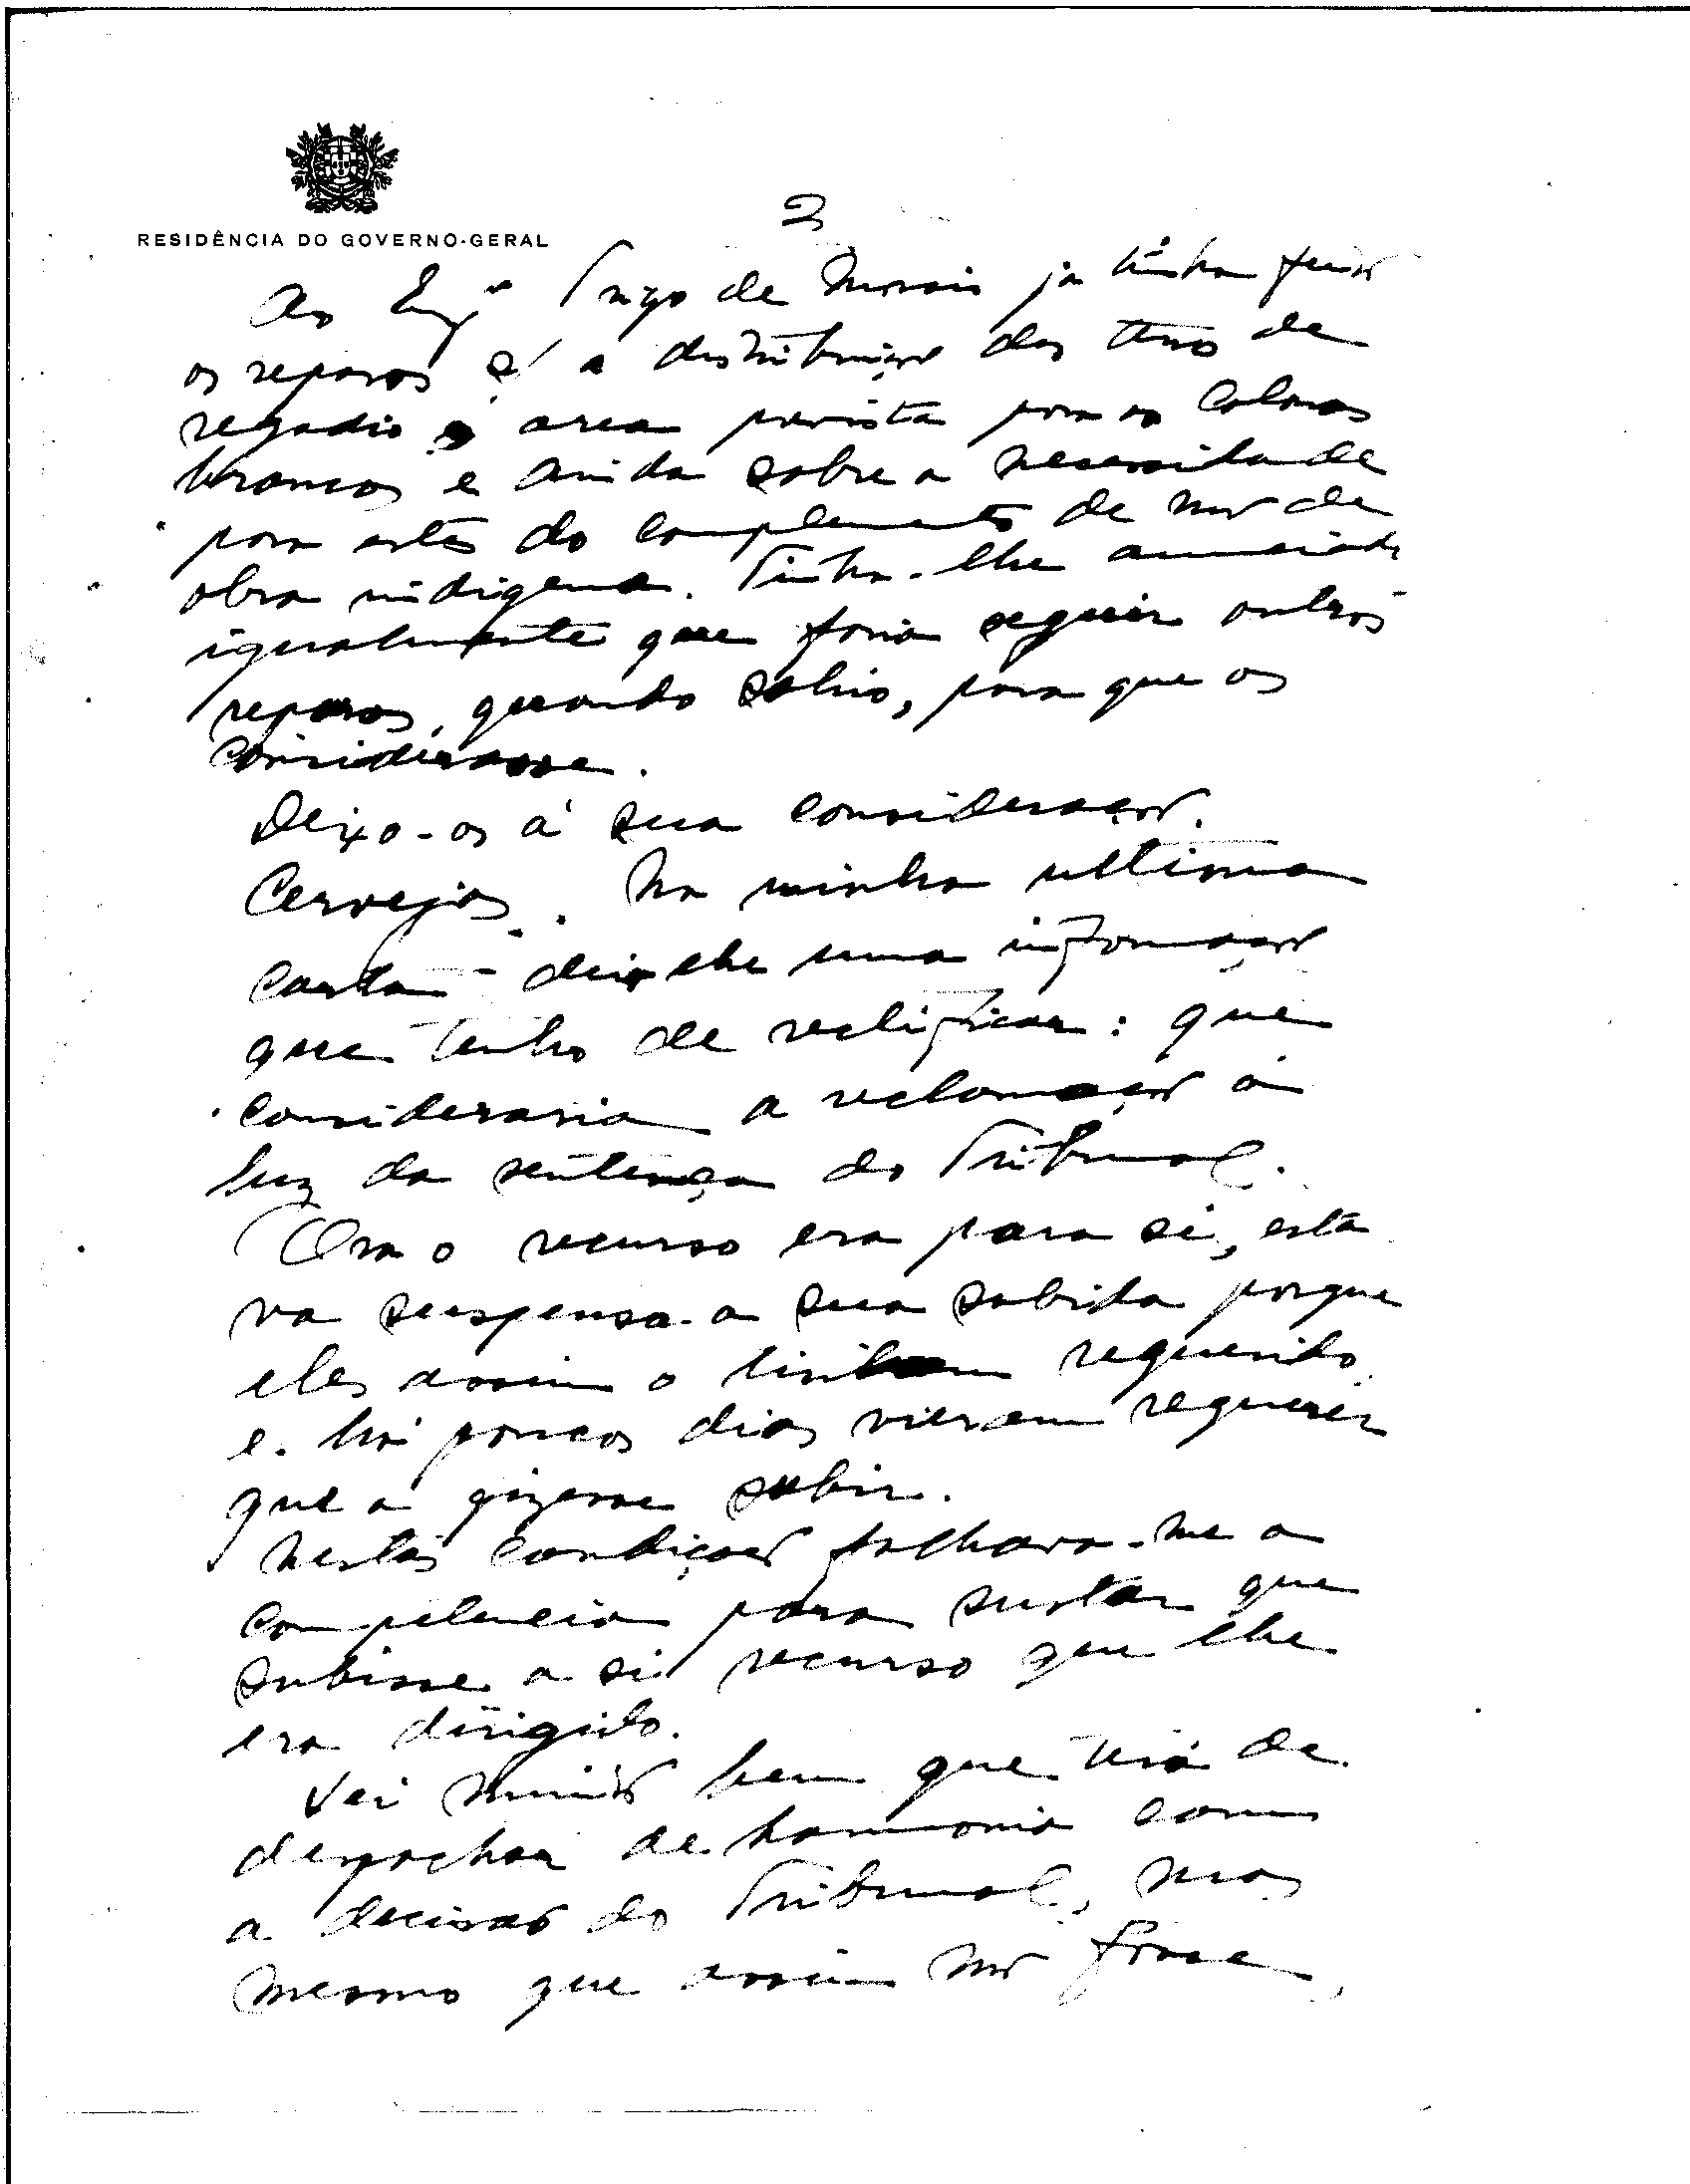 RESIDÊNCIA DO GOVERNO-GERAL
2
Ao Engº Trigo de Morais já tinha feito
os reparos q/ a distribuição das terras de
regadio e area prevista para os Colonos
brancos e ainda sobre a necessidade
para estes do complemento de mão de
obra indigena. Tinha-lhe anunciado
igualmente que faria seguir outros
reparos, quando sahio, para que os
considerasse.
Deixo-os á sua consideração.
Cervejas. Na minha ultima
carta dei-lhe uma informação
que tenho de rectificar: que
consideraria a reclamação á
luz da sentença do Tribunal.
Ora o recurso era para si, esta
va suspensa a sua subida porque
eles assim o tinham requerido
e há poucos dias vieram requerer
que a fizesse subir.
Nestas condições falhava-me a
competencia para sustar que
subisse a si recurso que lhe
era dirigido.
Vai muito bem que terá de
despachar de harmonia com
a decisão do Tribunal, mas
mesmo que assim não fosse,